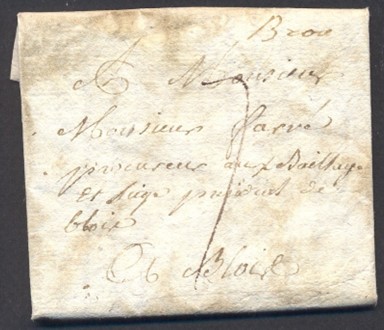 Brou
A Monsieur
Monsieur
procureur aux Bailliage
et siege presidial de
blois
A Blois